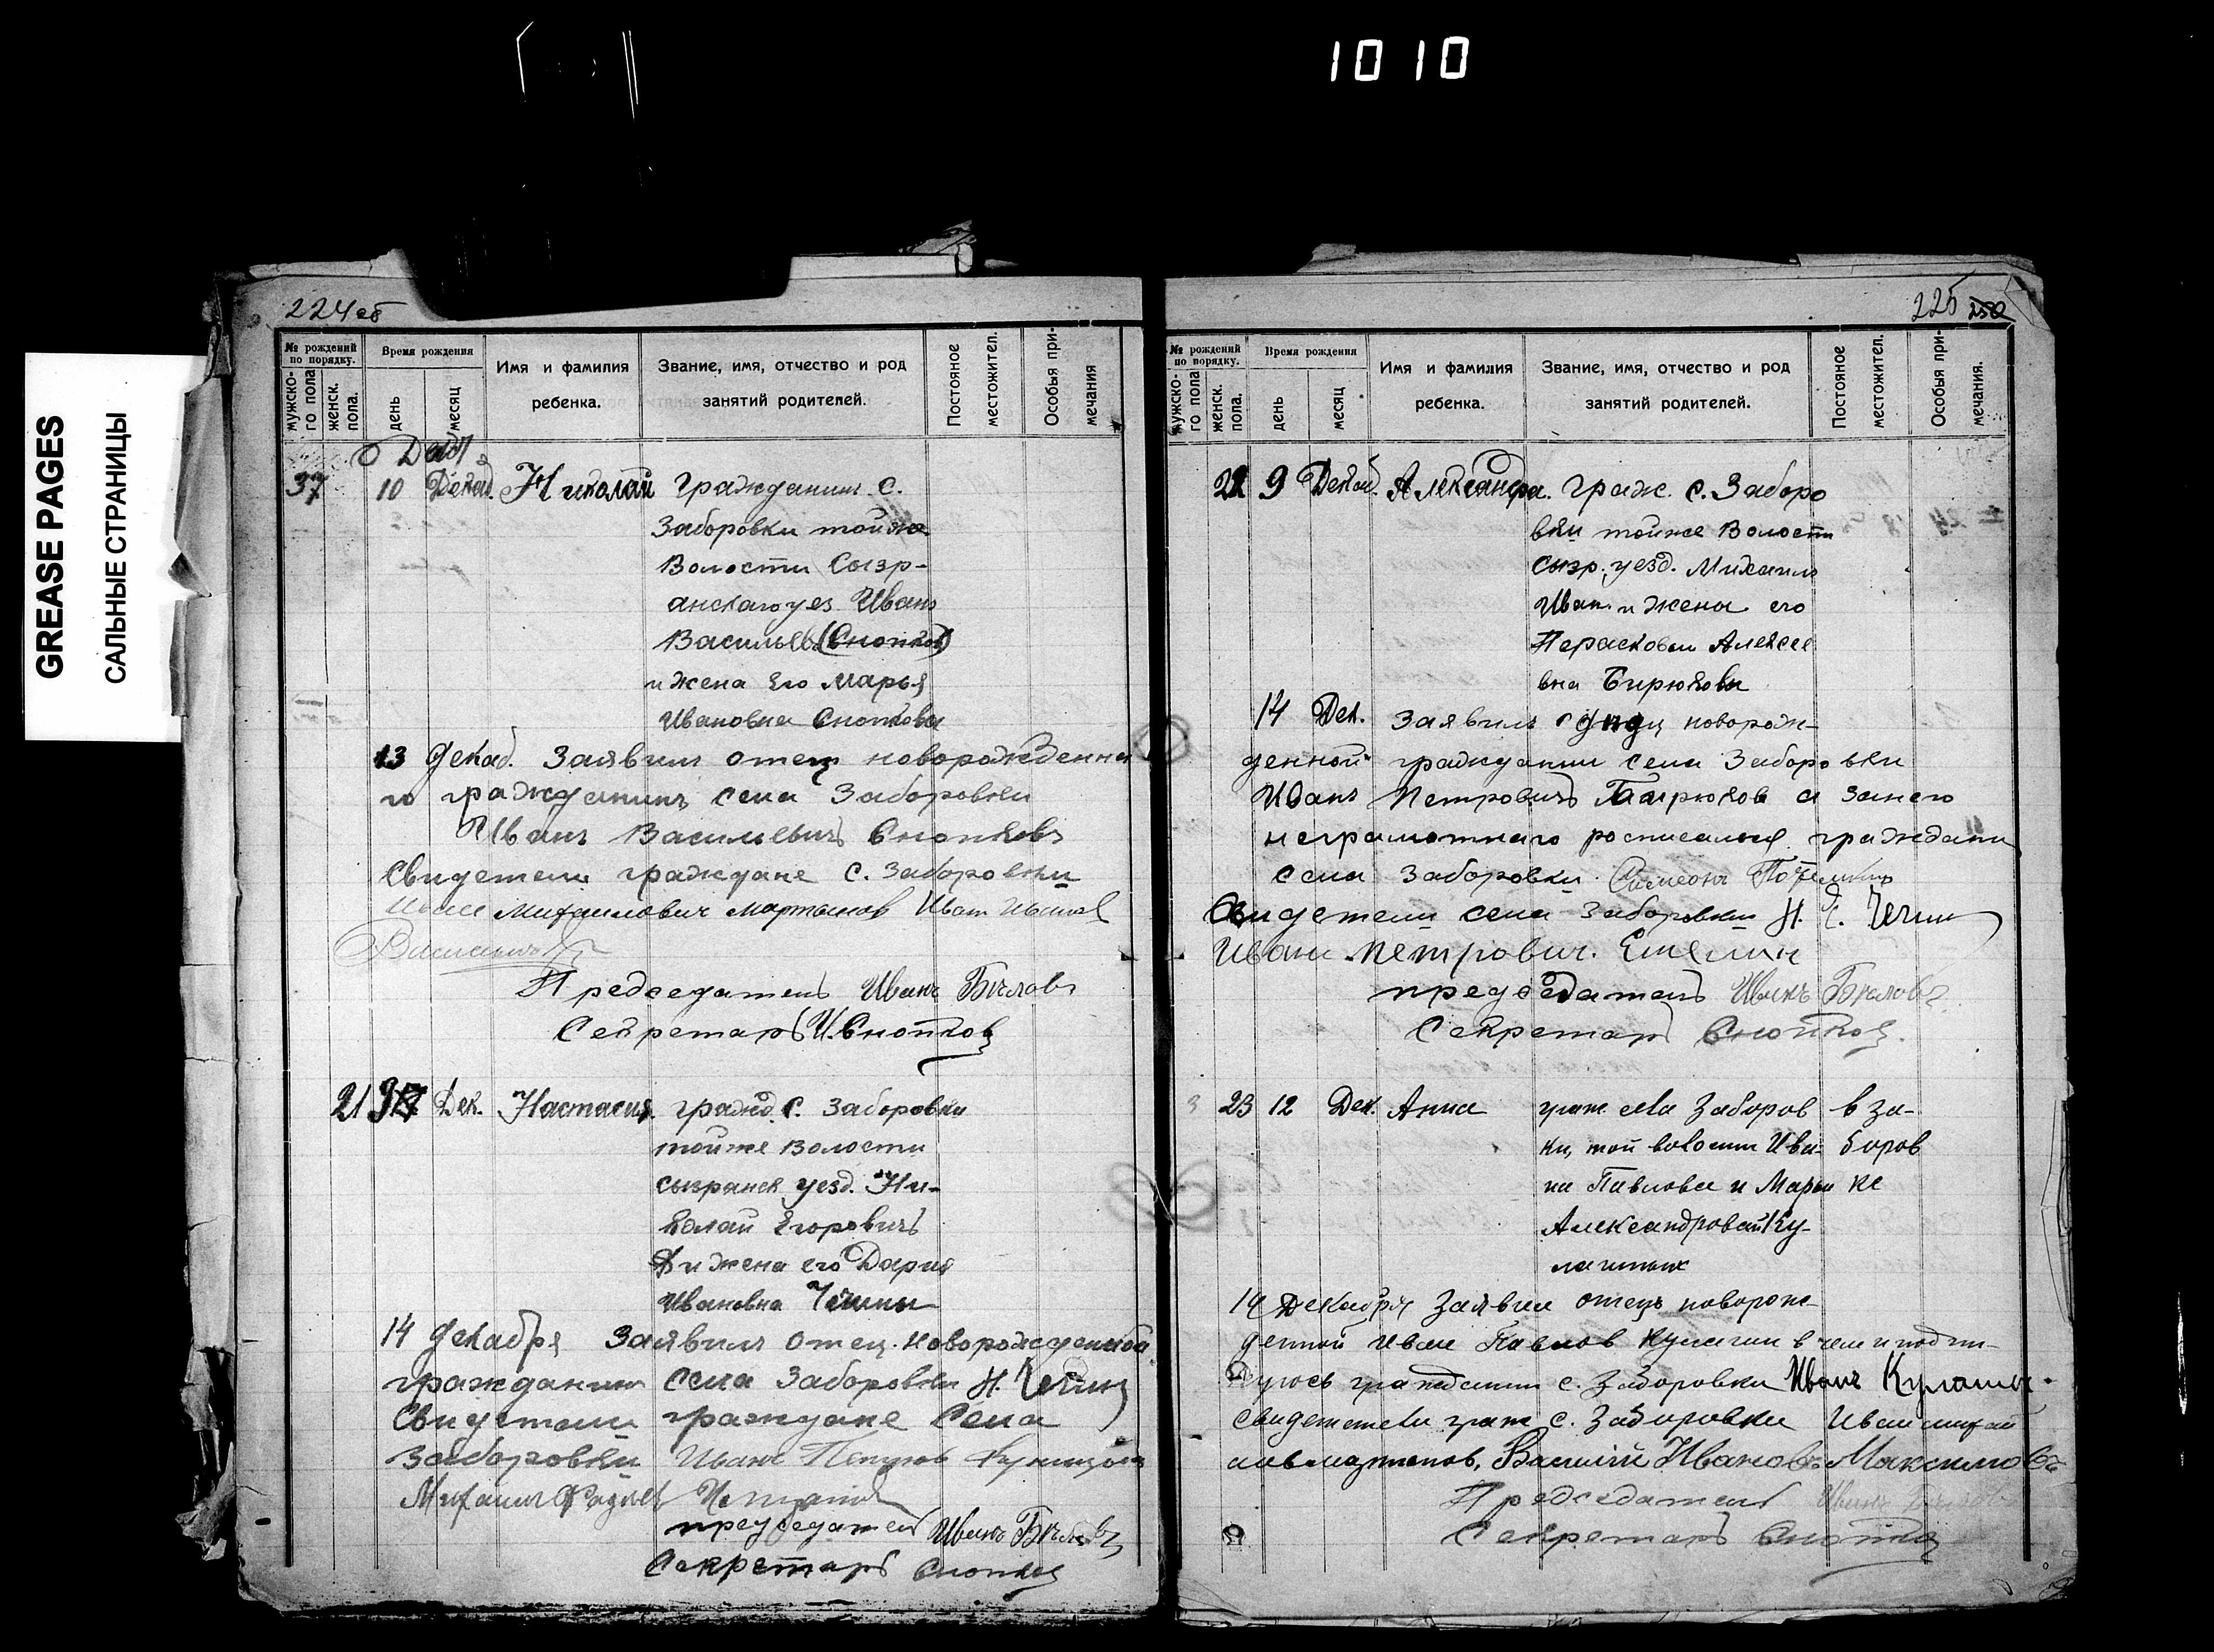 1010
GREASE PAGES
САЛЬНЫЕ СТРАНИЦЫ
224об
№ рождений по порядку.
мужско-го пола
женск. пола.
Время рождения
день
месяц
Имя и фамилия ребенка.
Звание, имя, отчество и род занятий родителей.
Постояное местожител.
Особыя при-мечания
37 10 Декаб. Николай Гражданин с.
Заборовки тойже
Волости Сызр-
анскаго уез Иванъ
Васильев (Снопков)
и жена Его Марья
Ивановна Снопкова
13 декаб. Заявил отец новорожденна
го гражданинъ села Заборовки
Иванъ Васильевичъ Снопковъ
Свидетели граждане с. Заборовки
Михаилович Мартынов Иван
Председатель Иванъ Бѣловъ
Секретарь И. Снопков
21 Дек. Настасия. гражд. с. Заборовки
тойже Волости
сызранск уезд. Ни-
колай Егоровичъ
и жена его Дария
Ивановна
14 декабря Заявилъ отец новорожденной
гражданин села Заборовки Н.
Свидетели граждане Села
Заборовки Иванъ
Михаилъ
председатель Иванъ Бѣловъ
Секретарь Снопков
225
№ рождений по порядку.
мужско-го пола
женск. пола.
Время рождения
день
месяц
Имя и фамилия ребенка.
Звание, имя, отчество и род занятий родителей.
Постояное местожител.
Особыя при-мечания.
22 9 Декаб. Александра. Граж. с. Заборо
вки тойже Волости
Сызр. уезд. Михаилъ
Иван. и жена его
Парасковьи Алексее
вна Бирюкова
14 Дек. Заявилъ новорож-
денной гражданин села Заборовки
Иванъ Петровичъ а за него
неграмотнаго росписался граждани
села Заборовки. Симеонъ
Свидетели села Заборовки Н.
Иван Петрович.
председатель Иванъ Бѣловъ
Секретарь Снопков.
23 12 Дек. Анна граж. села Заборов в За-
ки, той волости Ива- боров
на Павлова и Марьи ке
Александровой Ку-
14 Декабря Заявил отецъ наворож-
денной Иван Павлов в чем и подпи-
гражданин с. Заборовки Иванъ
Свидетели граж. с. Заборовки Иван
Василий Ивановъ Максимовъ
Председатель
Секретарь